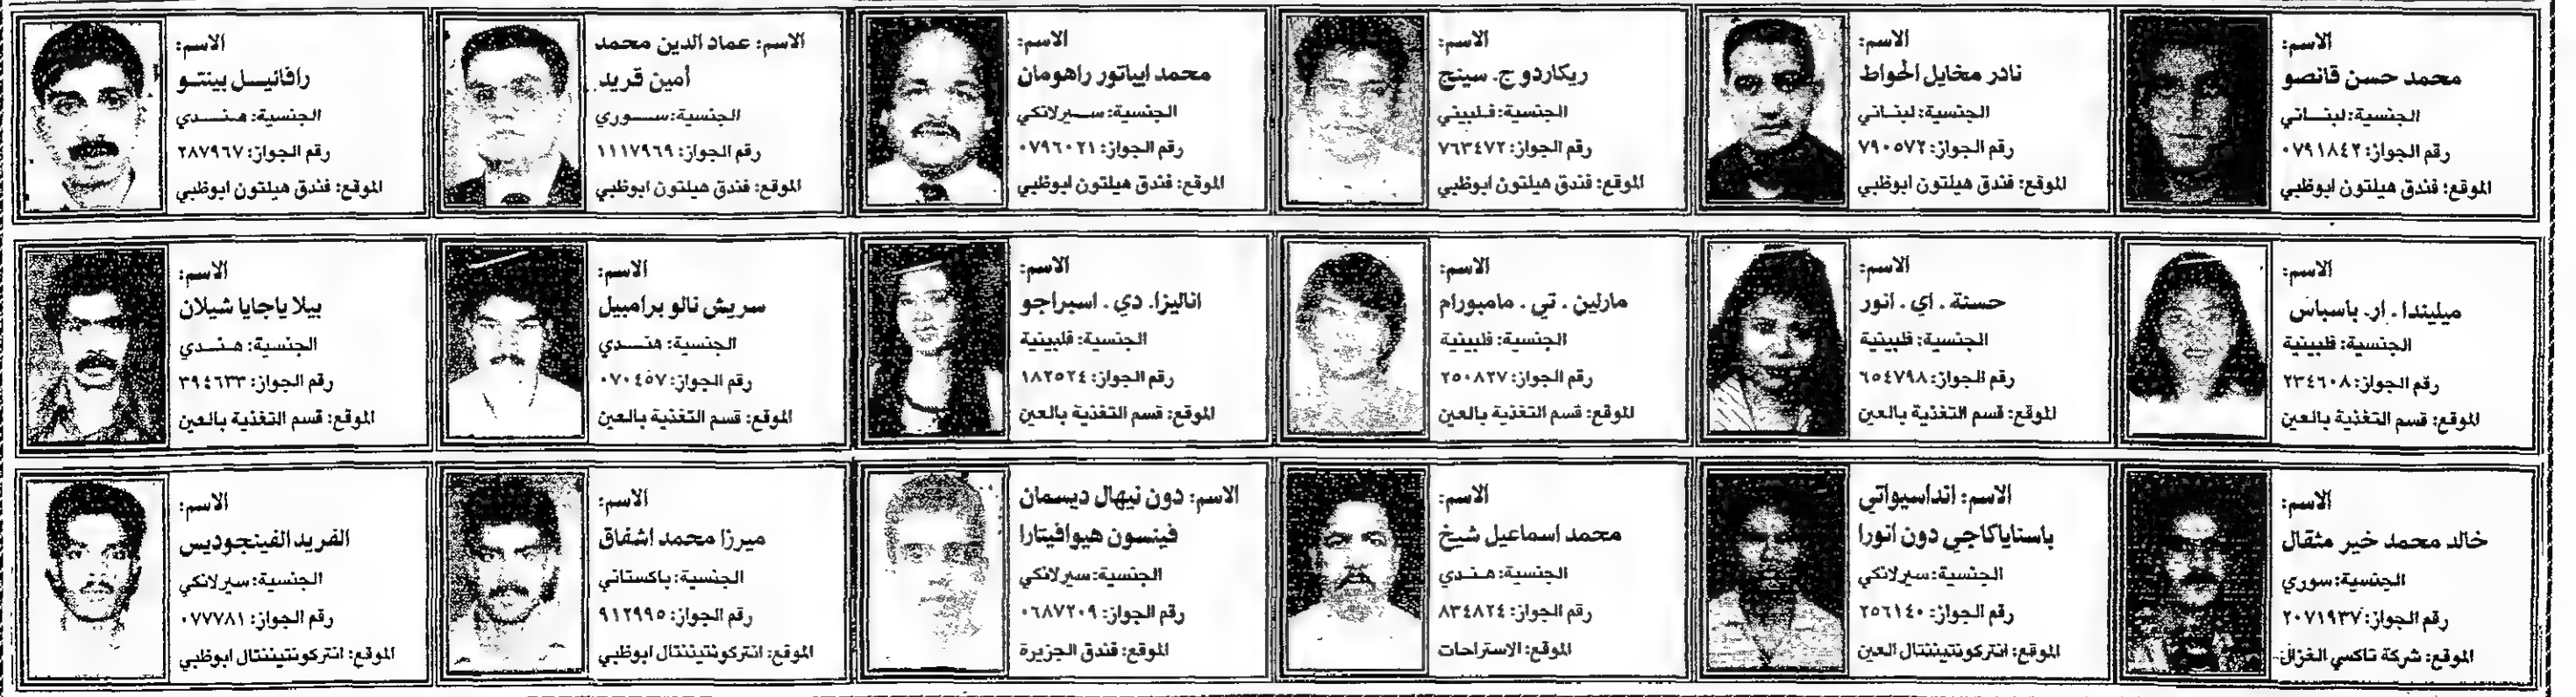 الاسم:
محمد حسن قانصو
الجنسية: لبنـــاني
رقم الجواز: ٠٧٩١٨٤٢
الموقع: فندق هيلتون ابوظبي
الاسم:
نادر مخايل الحواط
الجنسية: لبنــاني
رقم الجواز: ٧٩٠٥٧٢
الموقع: فندق هيلتون ابوظبي
الاسم:
ريكاردو ج. سينج
الجنسية: فلبيني
رقم الجواز: ٧٦٣٤٧٢
الموقع: فندق هيلتون ابوظبي
الاسم:
محمد ابياتور راهومان
الجنسية: ســيرلانكي
رقم الجواز: ٠٧٩٦٠٢١
الموقع: فندق هيلتون ابوظبي
الاسم: عماد الدين محمد
أمين قريد
الجنسية: ســـوري
رقم الجواز: ١١١٧٩٦٩
الموقع: فندق هيلتون ابوظبي
الاسم:
رافائيـــل بينتــو
الجنسية: هـنـــدي
رقم الجواز: ٢٨٧٩٦٧
الموقع: فندق هيلتون ابوظبي
الاسم:
ميليندا . ار. باسباس
الجنسية: فلبينية
رقم الجواز: ٢٣٤٦٠٨
الموقع: قسم التغذية بالعين
الاسم:
حسنة . اي . انور
الجنسية: فلبينية
رقم الجواز: ٦٥٤٧٩٨
الموقع: قسم التغذية بالعين
الاسم:
مارلين . تي . مامبورام
الجنسية: فلبينية
رقم الجواز: ٢٥٠٨٢٧
الموقع: قسم التغذية بالعين
الاسم:
اناليزا. دي . اسبراجو
الجنسية: فلبينية
رقم الجواز: ١٨٢٥٢٤
الموقع: قسم التغذية بالعين
الاسم:
سريش نالو برامبيل
الجنسية: هنـــدي
رقم الجواز: ٠٧٠٤٥٧
الموقع: قسم التغذية بالعين
الاسم:
بيلا ياجايا شيلان
الجنسية: هـنـــدي
رقم الجواز: ٣٩٤٦٣٣
الموقع: قسم التغذية بالعين
الاسم:
خالد محمد خير مثقال
الجنسية: سوري
رقم الجواز: ٢٠٧١٩٣٧
الموقع: شركة تاكسي الغزال
الاسم: انداسيواتي
باستاياكاجي دون انورا
الجنسية: سيرلانكي
رقم الجواز: ٢٥٦١٤٠
الموقع: انتركونتيننتال العين
الاسم:
محمد اسماعيل شيخ
الجنسية: هـنـدي
رقم الجواز: ٨٣٤٨٢٤
الموقع: الاستراحات
الاسم: دون نيهال ديسمان
فينسون هيوافيتارا
الجنسية: سيرلانكي
رقم الجواز: ٠٦٨٧٢٠٩
الموقع: فندق الجزيرة
الاسم:
ميرزا محمد اشفاق
الجنسية: باكستاني
رقم الجواز: ٩١٢٩٩٥
الموقع: انتركونتيننتال ابوظبي
الاسم:
الفريد الفينجوديس
الجنسية: سيرلانكي
رقم الجواز: ٠٧٧٧٨١
الموقع: انتركونتيننتال ابوظبي